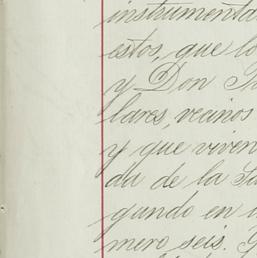 instrumenta
estos, que lo
y Don
lares, vecinos
y que viven
da de la
gundo en
mero seis.